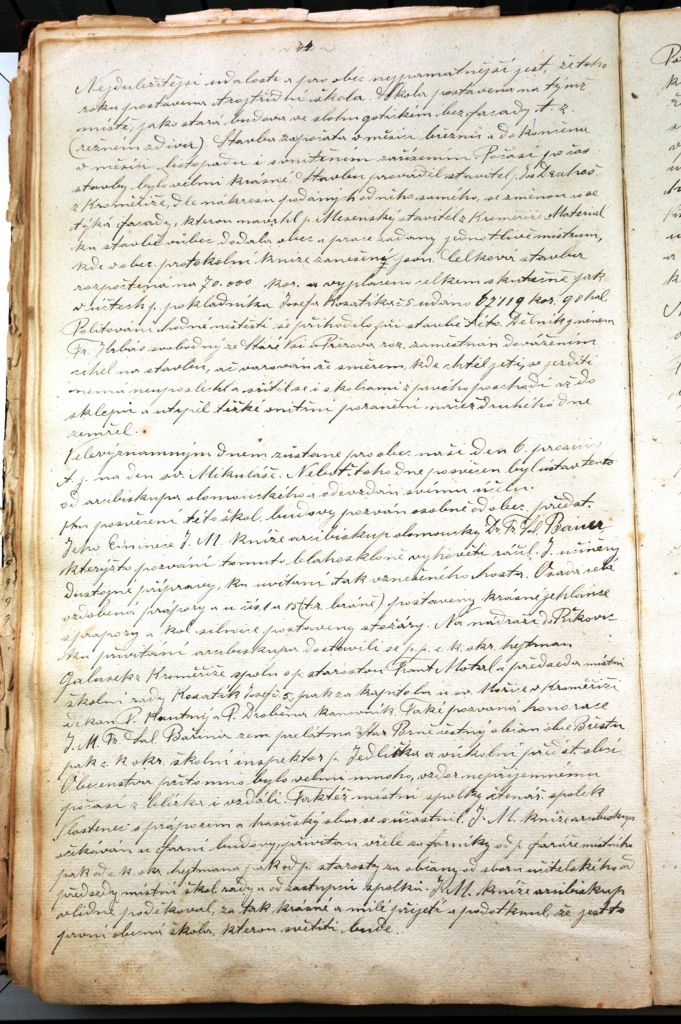 44
Nejdůležitější událostí a pro obec nejpamátnější jest, že toho
roku postavena trojtřídní škola. Škola postavena na týmž
místě, jako stará, budova ve slohu gotickém, bez fasady t. z.
(rezném zdivu). Stavba započata v měsíci březnu a dokončena
v měsíci listopadu i s vnitřním zařízením. Počasí po čas
stavby bylo velmi krásné. Stavbu prováděl stavitel Jos.
z Kroměříže, dle nákresu podaných od něho samého, se změnou co se
týká fasady, kterou navrhl p. Mesenský stavitel z Kroměříže. Materiál
ku stavbě vůbec dodala obec a práce zadány jednotlivě mistrům,
kde v obec. protokolní knize zanešeny jsou. Celková stavba
rozpočtena na 70.000 kor. a vyplaceno celkem skutečně jak
v účtech p. pokladníka Josefa Kozatíka č 5 udáno 67119 kor. 90 hal
Politování hodné neštěstí se přihodilo při stavbě této. Dělník jménem
Fr. svobodný ze Staré Vsi u Přerova roz. zaměstnán dovážením
cihel na stavbu, ač varován že směrem, kde chtěl jeti, se jezditi
nemá neuposlechl a sřítil se i s kolkami z prvého poschodí až do
sklepů a utrpěl těžké vnitřní poranění načež druhého dne
zemřel.
Velevýznamným dnem zůstane pro obec naši den 6. prosince
t. j. na den sv. Mikuláše. Neboť toho dne posvěcen byl ústav tento
od arcibiskupa olomouckého a odevzdán svému účelu.
Ku posvěcení této škol. budovy pozván osobně od obec. předst.
Jeho Eminence J. M. kníže arcibiskup olomoucký Dr. Fr. Sal. Bauer
kterýžto pozvání tomuto blahosklonně vyhověti ráčil. I učiněny
důstojné přípravy, ku uvítání tak vznešeného hosta. Osada celá
ozdobena prápory a u čís. 1 a 15 (t.z. bráně) postaveny krásné jehlance
s prapory a kol silnice postaveny stožáry. Na nádraží do Říkovic
ku přivítání arcibiskupa dostavili se p.p. c. k. okr. hejtman
Galusek z Kroměříže spolu s p. starostou Frant. Motal a předseda místní
školní rady Kozatík Josef č 5, pak za kapitolu u sv. Mořice v Kroměříži
děkan P. Kautný a P. Drobena kanovník. Také pozvaná honorace
J. M. Fr. Sal Bařina zem. prelát na Star. Brně čestný občan obce Břestu
pak c. k. okr. školní inspektor p. Jedlička a okolní předst. obcí
Obecenstva přítomno bylo velmi mnoho, vzdor nepříjemnému
počasí z blízka i vzdálí. Taktéž místní spolky čtenář. spolek
Vlastenec s práporem a hasičský sbor se súčastnil. J. M. kníže arcibiskup
očekáván u farní budovy, přivítán vřele za farníky od p. faráře místního
pak od c. k. okr. hejtmana, pak od p. starosty za občany od sboru učitelského od
předsedy místní škol. rady a od zástupců spolků. J. M. kníže arcibiskup
vlídně poděkoval, za tak krásné a milé přijetí a podotknul, že jest to
první obecná škola, kterou světiti bude.